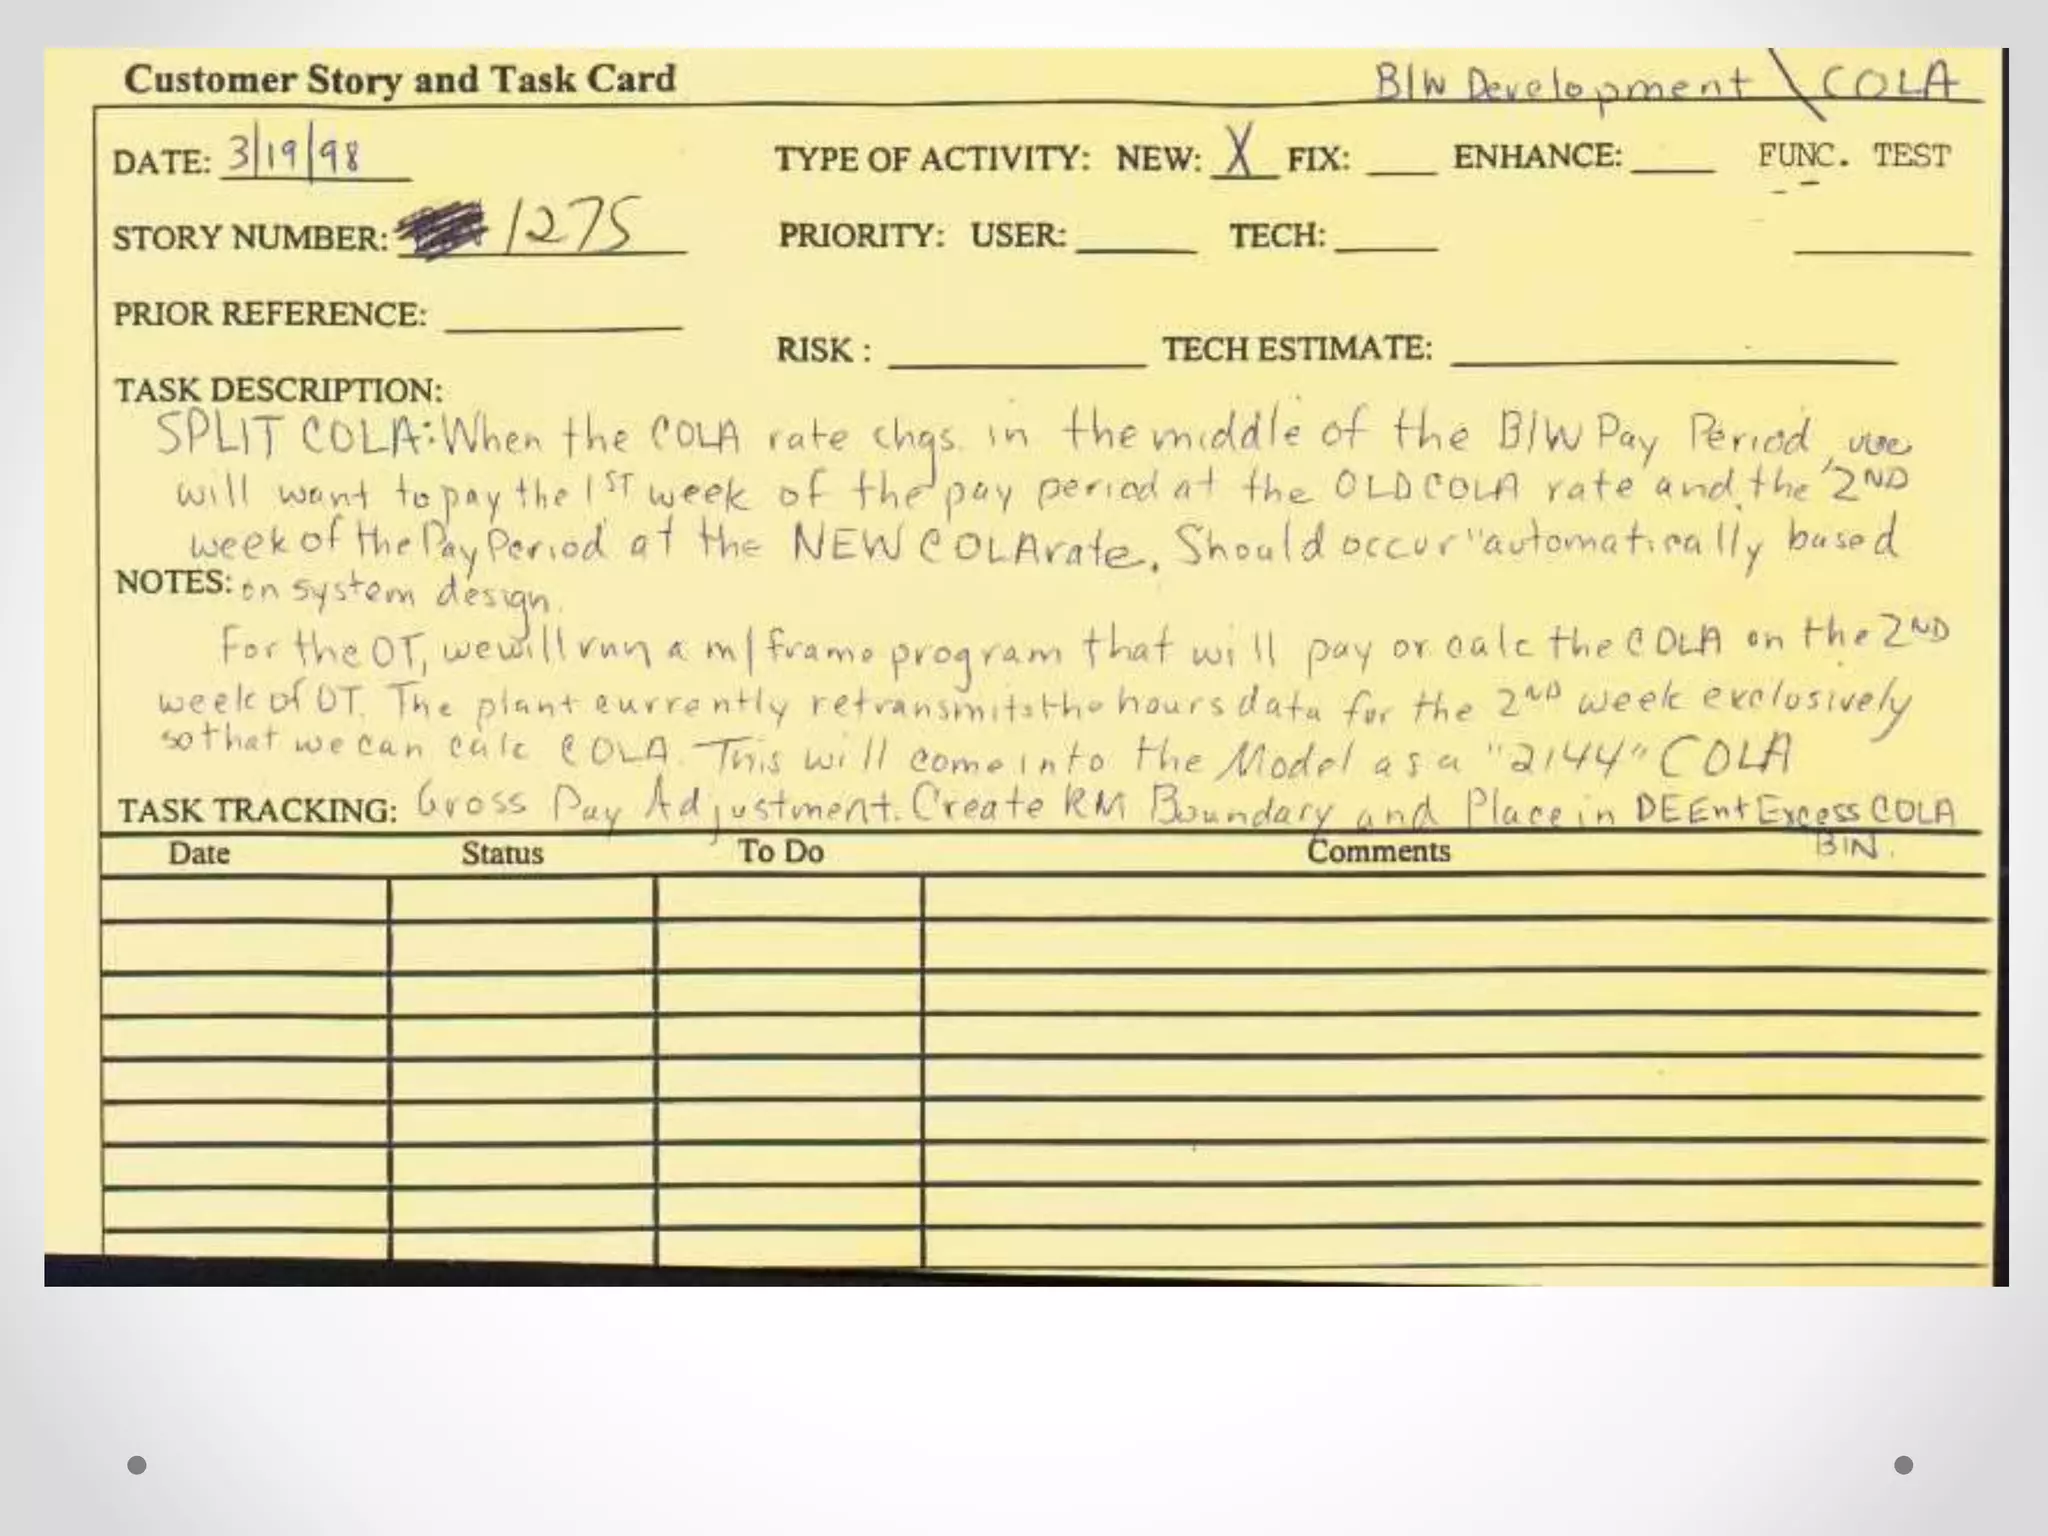 Customer Story and Task Card B/W Development \ COLA
DATE: 3/19/98 TYPE OF ACTIVITY: NEW: X FIX: ENHANCE: FUNC. TEST
STORY NUMBER: 1275 PRIORITY: USER: TECH:
PRIOR REFERENCE:
RISK : TECH ESTIMATE:
TASK DESCRIPTION:
SPLIT COLA: When the COLA rate chgs. in the middle of the B/W Pay Period, we
will want to pay the 1ST week of the pay period at the OLD COLA rate and the 2ND
week of the Pay Period at the NEW COLA rate. Should occur "automatically based
NOTES: on system design.
For the OT, we will run a m/frame program that will pay or calc the COLA on the 2ND
week of OT. The plant currently retransmits the hours data for the 2ND week exclusively
so that we can calc COLA. This will come into the Model as a "2144" COLA
TASK TRACKING: Gross Pay Adjustment. Create RM Boundary and Place in DEEnt Excess COLA
BIN.
Date Status To Do Comments